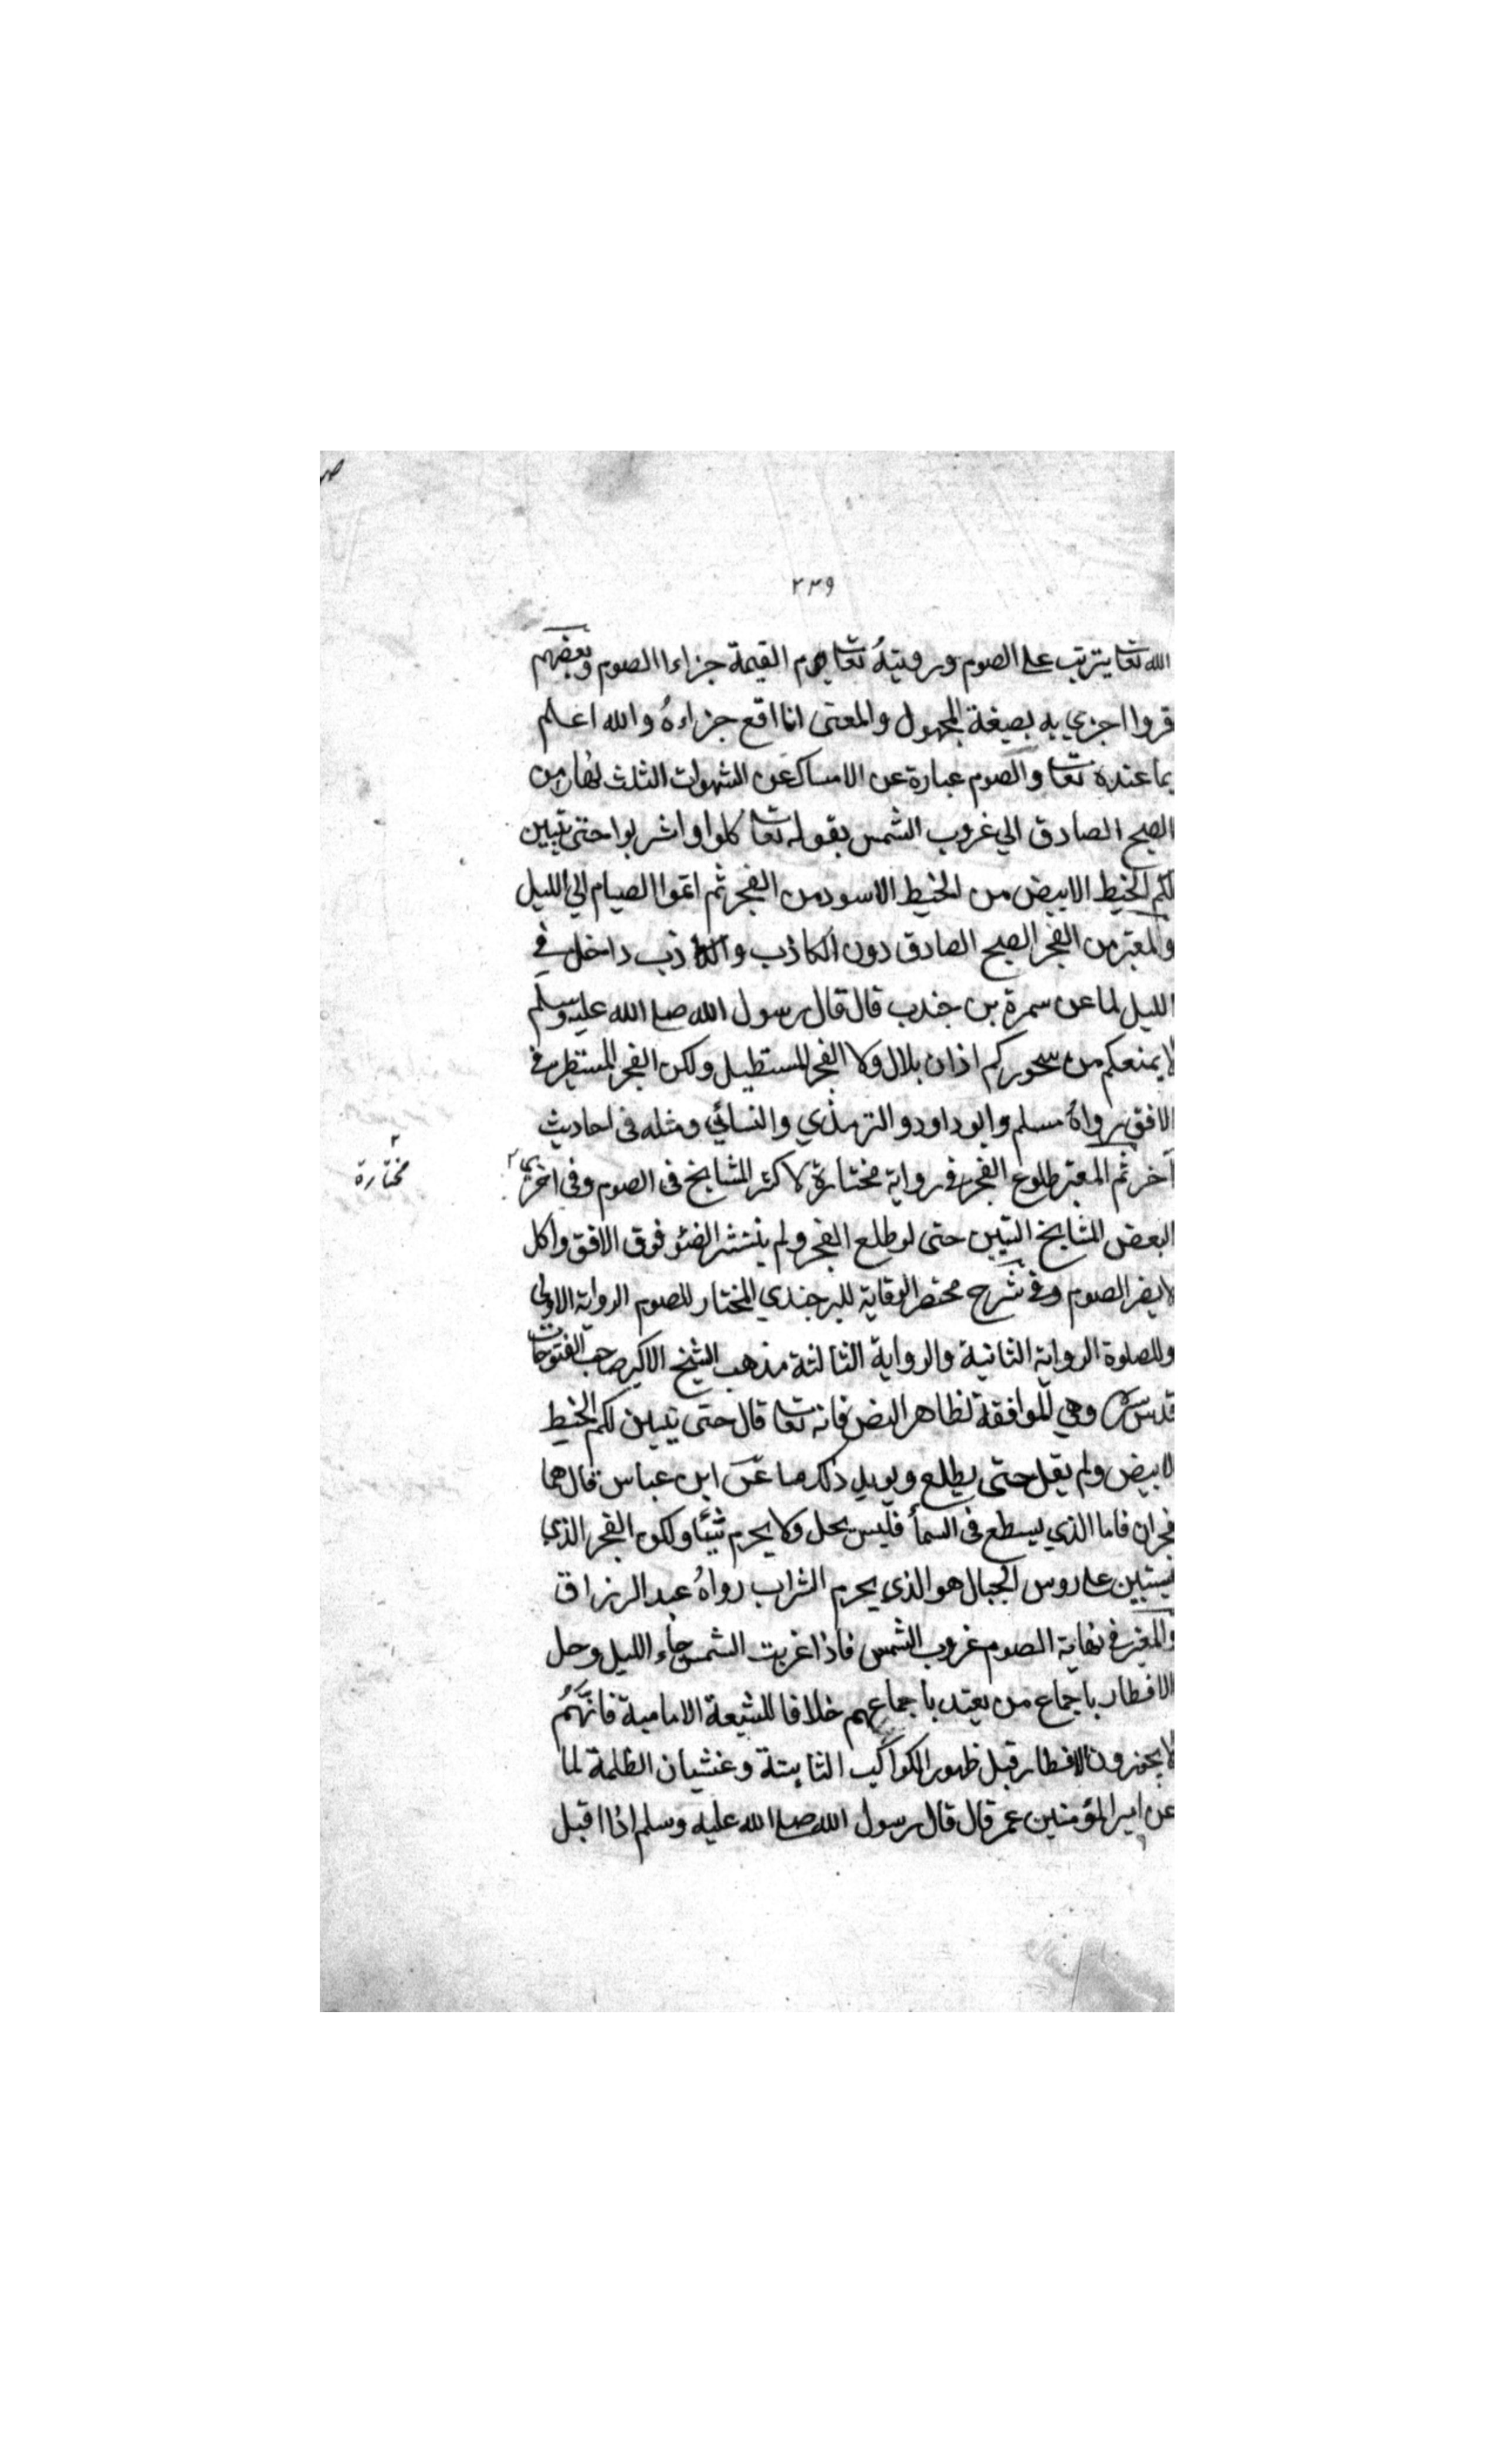 ٢٣٩
الله تعا يترتب على الصوم ورويته تعا يوم القيمة جزاء الصوم وبعضهم
قروا اجزي به بصيغة المجهول والمعنى انا اقع جزاءه والله اعلم
بما عنده تعا والصوم عبارة عن الامساك عن الشهوات الثلث نهارا من
الصبح الصادق الي غروب الشمس بقوله تعا كلوا واشربوا حتى يتبين
لكم الخيط الابيض من الخيط الاسود من الفجر ثم اتموا الصيام الي الليل
والمعتبر من الفجر الصبح الصادق دون الكاذب والكاذب داخل في
الليل لما عن سمرة بن جندب قال قال رسول الله صلى الله عليه وسلم
لا يمنعكم من سحوركم اذان بلال ولا الفجر المستطيل ولكن الفجر المستطير في
الافق رواه مسلم وابو داود والترمذي والنسائي ومثله فى احاديث
آخر ثم المعتبر طلوع الفجر في رواية مختارة لاكثر المشايخ فى الصوم وفي اخري
مختارة
البعض المشايخ التبين حتى لو طلع الفجر ولم ينتشر الضئو فوق الافق واكل
لا يضر الصوم وفي شرح مختصر الوقاية للبرجندي المختار للصوم الرواية الاولي
وللصلوة الرواية الثانية والرواية الثالثة مذهب الشيخ الاكبر صاحب الفتوحات
قدس سره وهي للموافقة لظاهر النص فانه تعا قال حتى يتبين لكم الخيط
لابيض ولم يقل حتى يطلع ويويد ذلك ما عن ابن عباس قال هما
فجران فاما الذي يسطع فى السمأ فليس يحل ولا يحرم شيئا ولكن الفجر الذي
يستبين على روس الجبال هو الذي يحرم الشراب رواه عبد الرزاق
والمعتبر في نهاية الصوم غروب الشمس فاذا غربت الشمس جاء الليل وحل
الافطار باجماع من يعتد باجماعهم خلافا للشيعة الامامية فانهم
لا يجوزون الافطار قبل ظهور الكواكب الثابتة وغشيان الظلمة لما
عن امير المؤمنين عمر قال قال رسول الله صلى الله عليه وسلم اذا اقبل